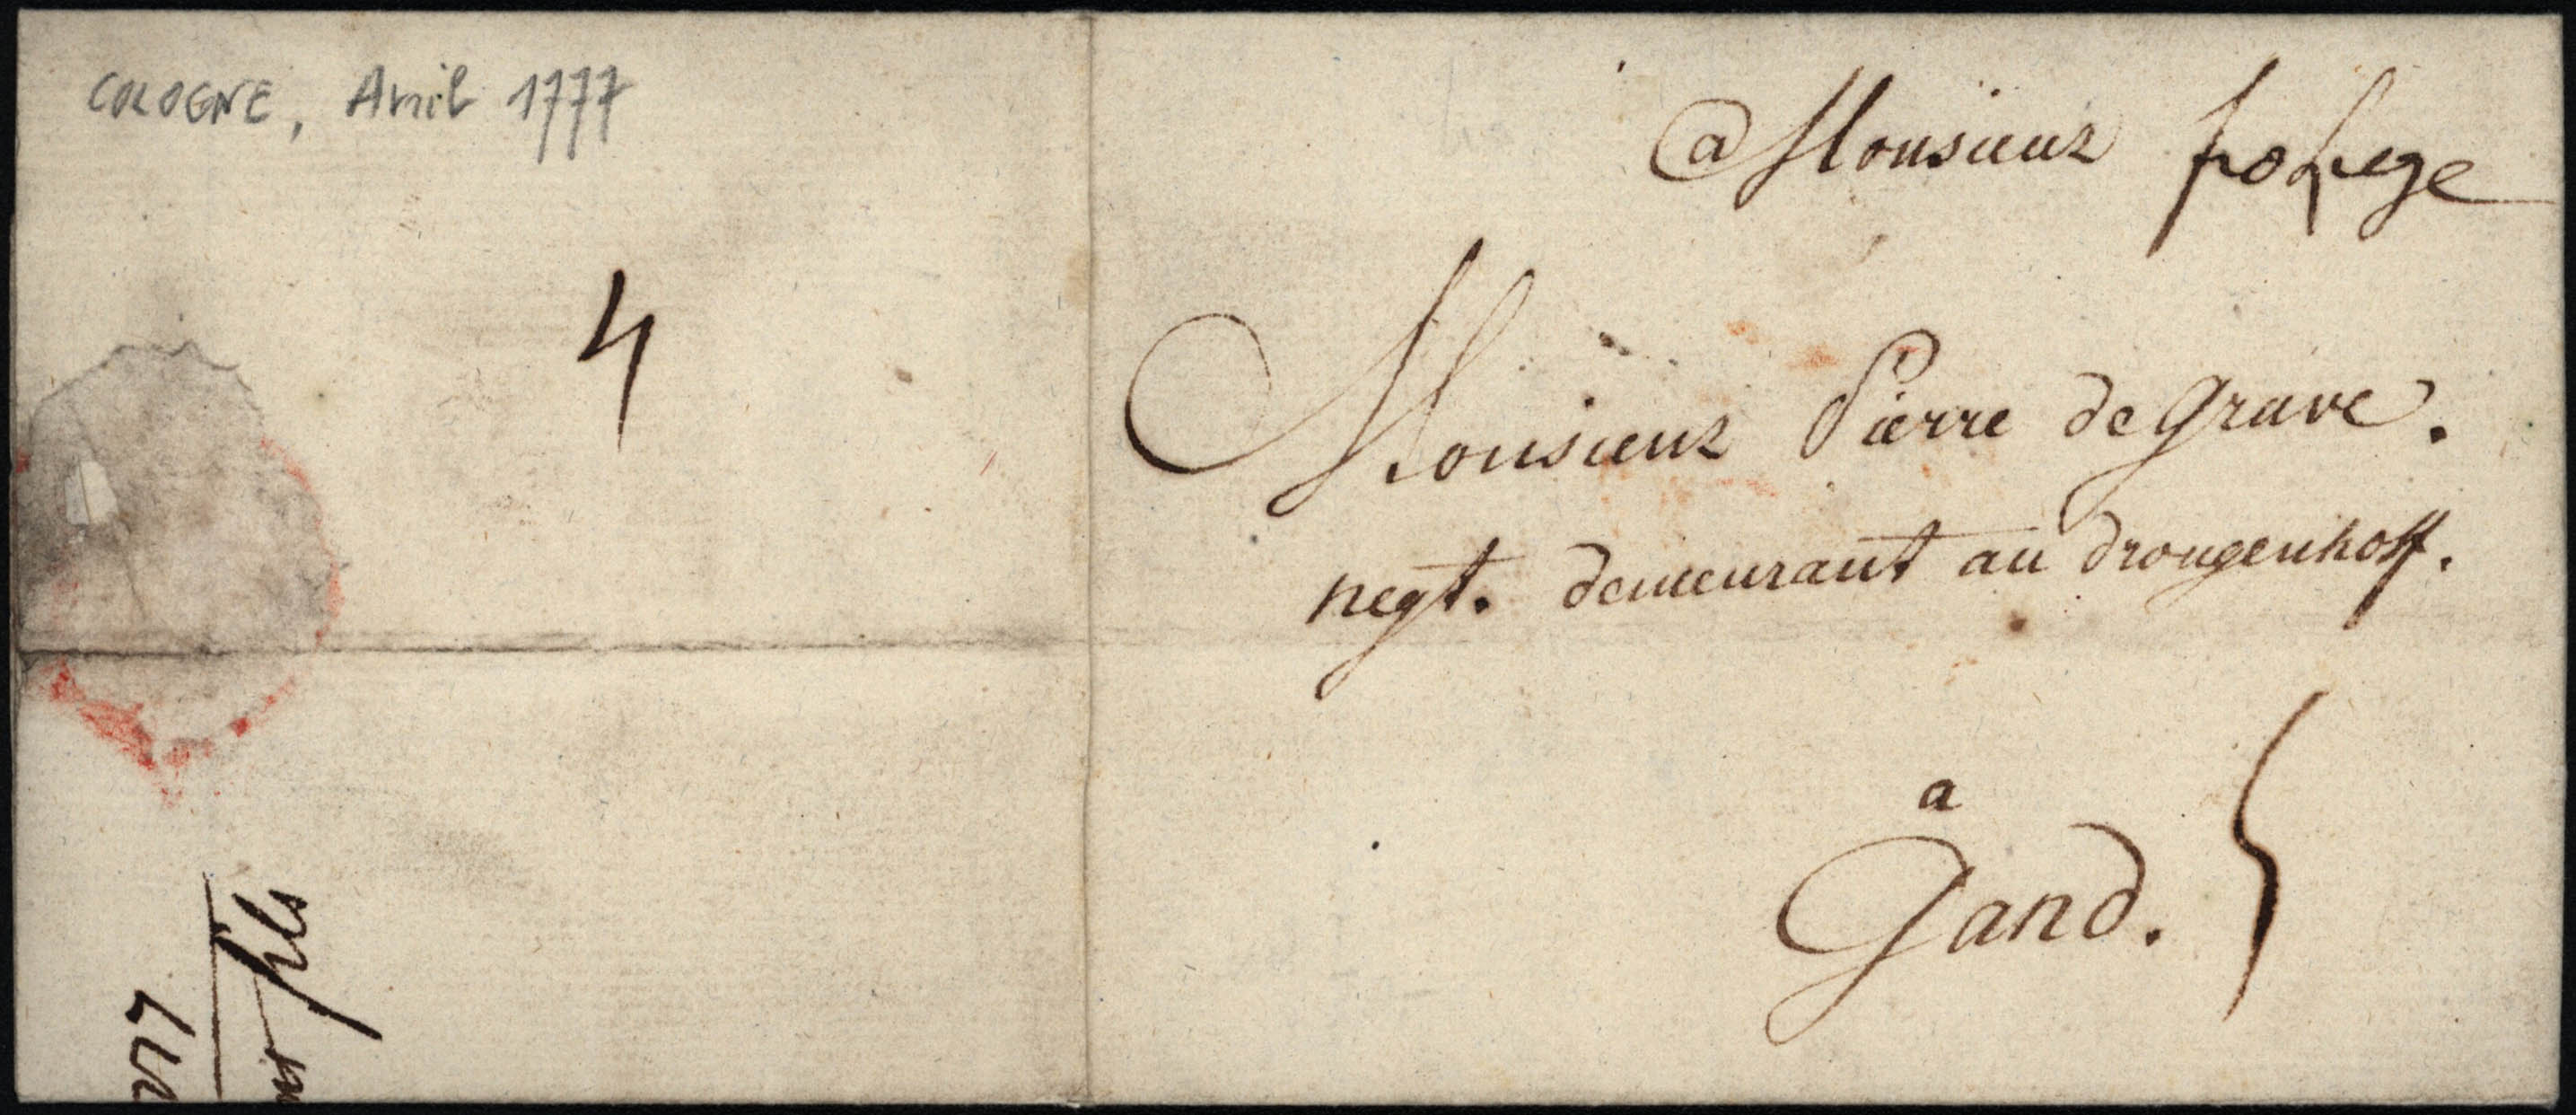 COLOGNE, Avril 1777
4
fils
a Monsieur
Monsieur Pierre de Grave.
negt. demeurant au drongenhoff.
a
Gand.